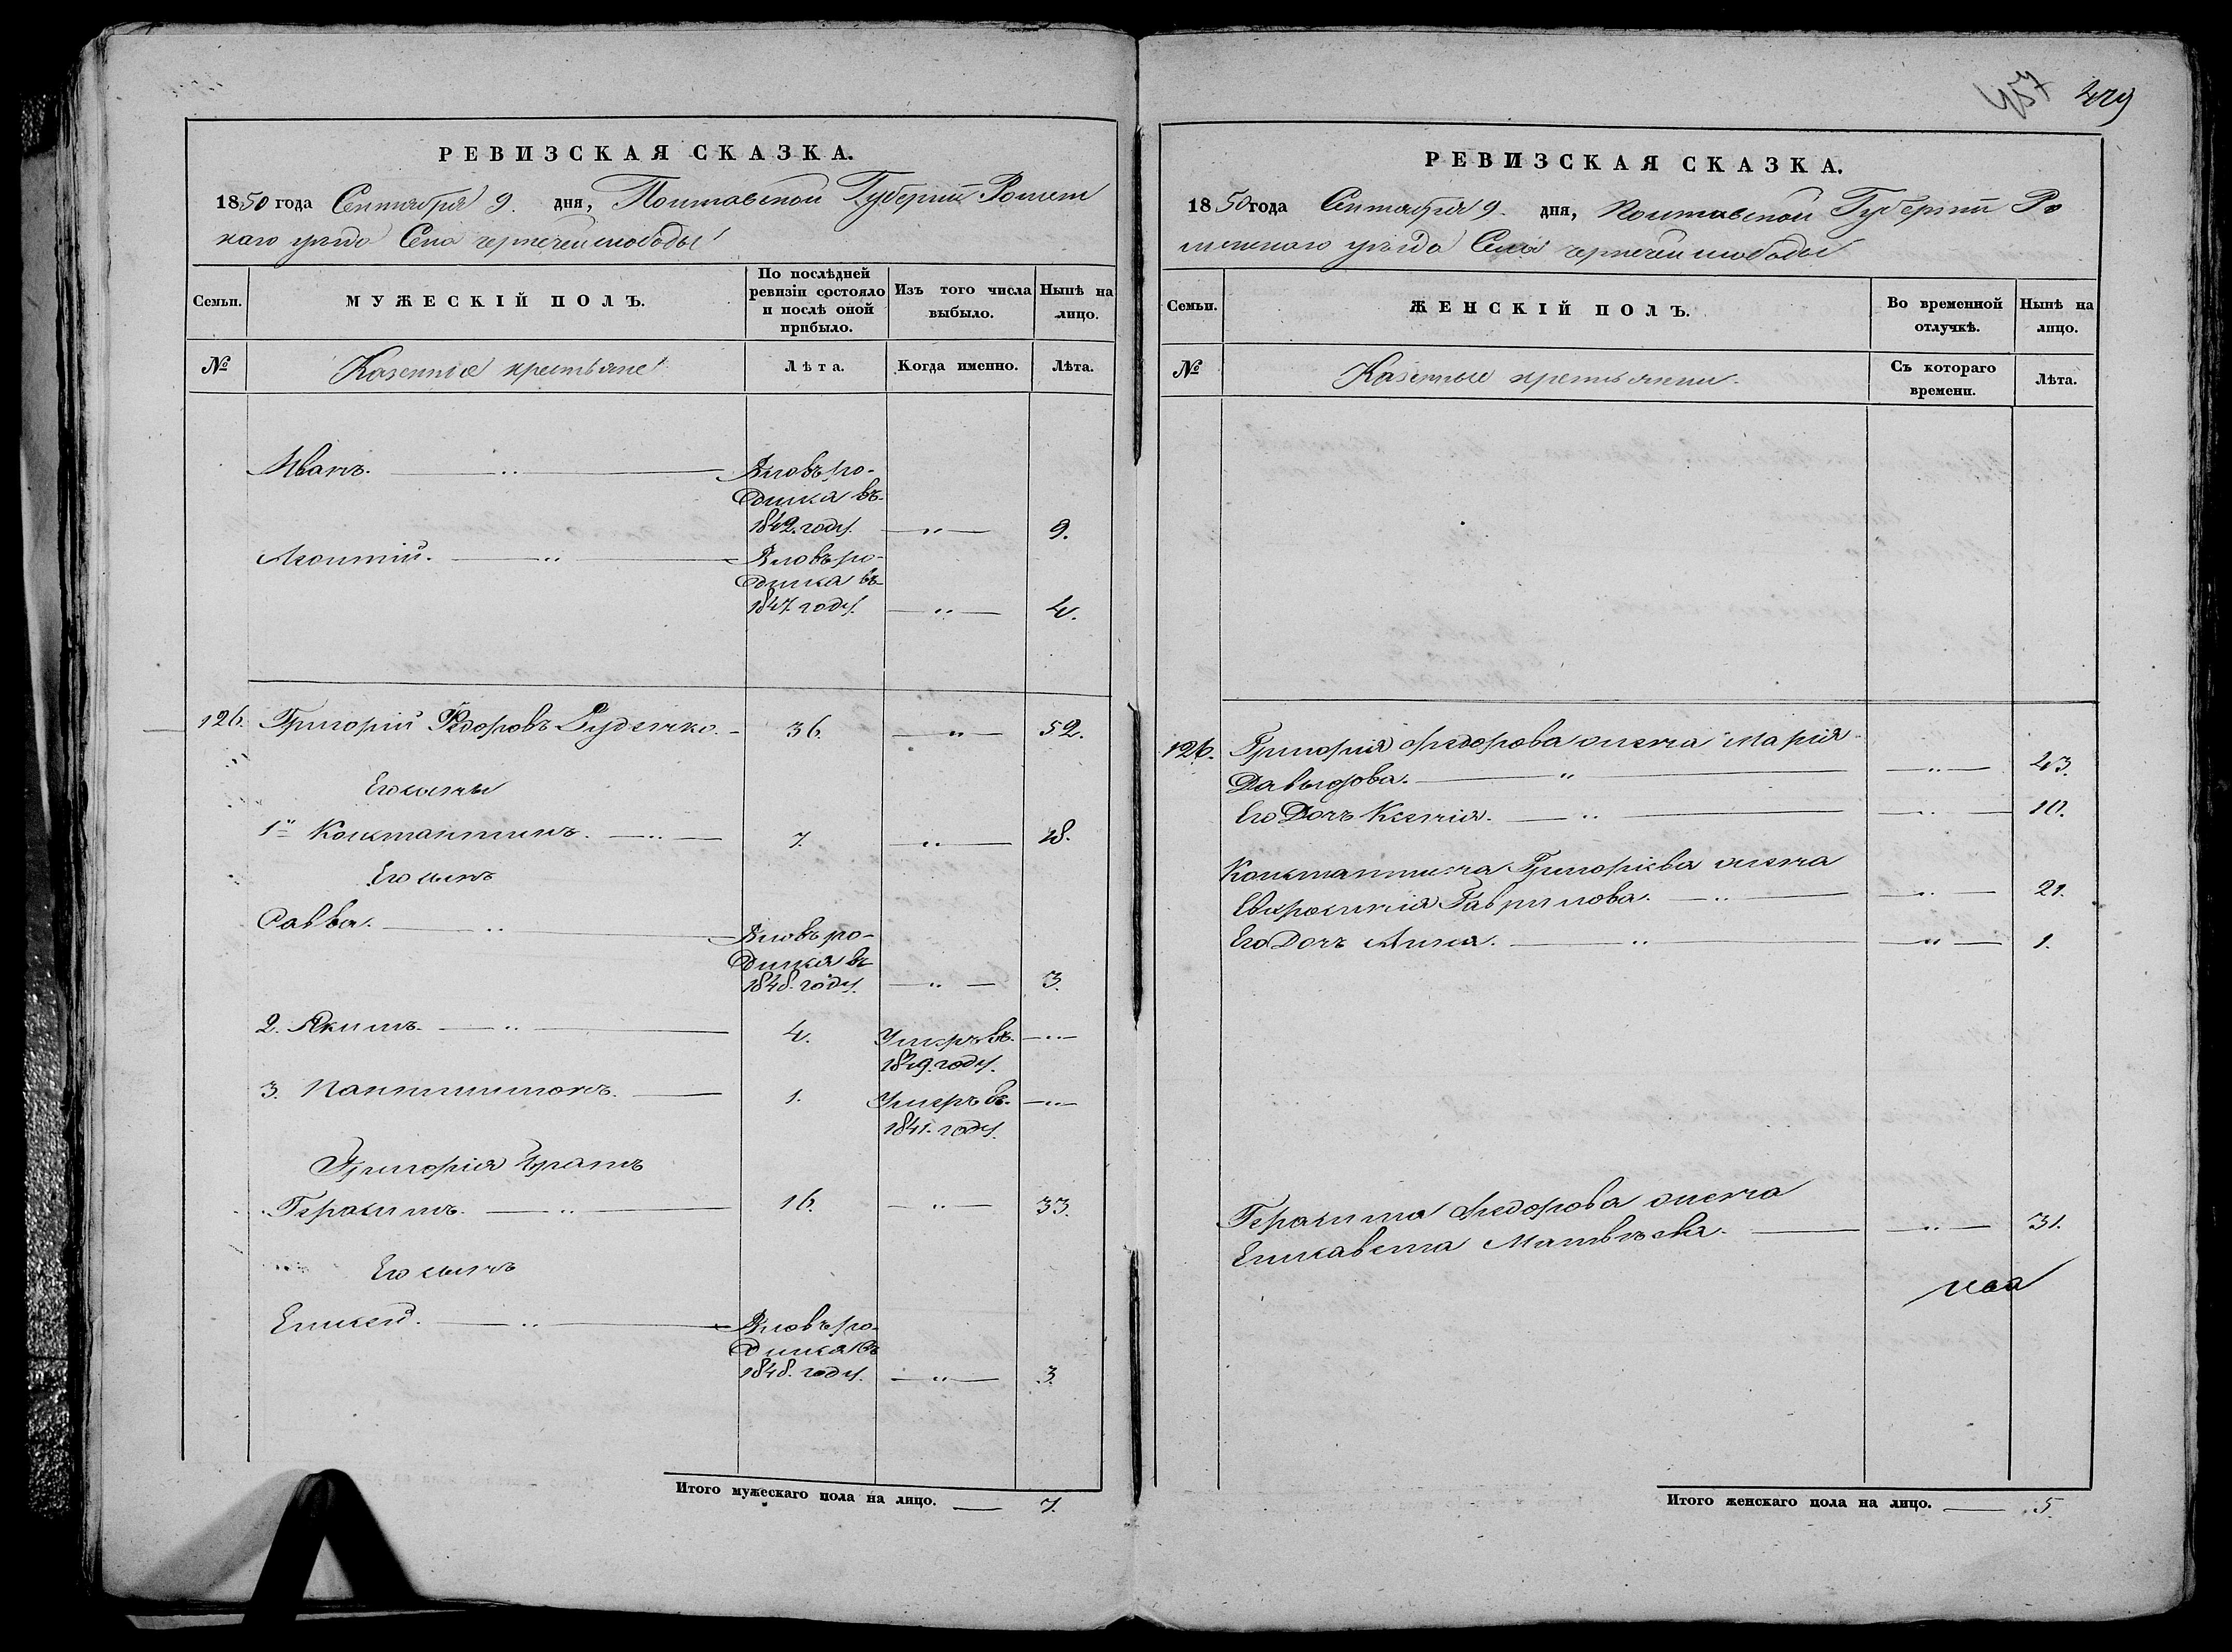 РЕВИЗСКАЯ СКАЗКА.
1850 года Сентября 9. дня, Полтавской Губерніи Ромен
скаго уезда Села чернечей слободы
Семьи.
МУЖЕСКІЙ ПОЛЪ.
По послѣдней ревизіи состояло и послѣ оной прибыло.
Изъ того числа выбыло.
Нынѣ на лицо.
№
Казенніе крестьяне
Лѣта.
Когда именно.
Лѣта.
Иванъ. — „ — Вновь ро-
дился въ
1842. году. — „ — 9.
Леонтій. — „ — Вновь ро-
дился въ
1847 году. — „ — 4.
126. Григорій Федоровъ Руденко. — 36. — „ — 52.
Его сыны
1й Константинъ. — „ — 7. — „ — 18.
Его сынъ
Савва. — „ — Вновь ро-
дился въ
1848. году. — „ — 3.
2. Якимъ. — „ — 4. Умеръ въ — „ —
1849. году.
3. Пантилимонъ. — 1. Умеръ въ. — „ —
1841. году.
Григорія братъ
Герасимъ. — „ — 16. — „ — 33.
Его сынъ
Елисей. — „ — Вновь ро-
дился въ
1848. году. — „ — 3.
Итого мужескаго пола на лицо. — 7.
457 429
РЕВИЗСКАЯ СКАЗКА.
1850 года Сентября 9. дня, Полтавской Губерніи Ро
менскаго уезда Села чернечей слободы
Семьи.
ЖЕНСКІЙ ПОЛЪ.
Во временной отлучкѣ.
Нынѣ на лицо.
№
Казенные крестьянки.
Съ котораго времени.
Лѣта.
126. Григорія Федорова жена Марія
Давыдова. — „ — — „ — 43.
Его Дочь Ксенія. — „ — — „ — 10.
Константина Григоріева жена
Евфросинія Гаврилова. — „ — — „ — 21.
Его Дочь Анна. — „ — — „ — 1.
Герасима Федорова жена
Елисавета Матвѣева. — — „ — 31.
Итого женскаго пола на лицо. — 5.